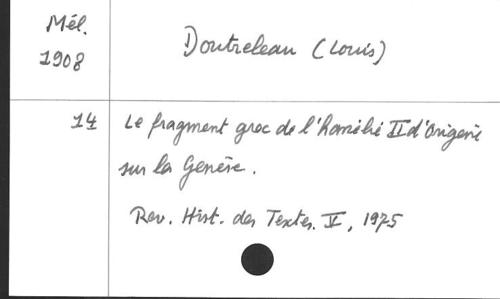 Mél.
1908
Doutreleau (Louis)
14
Le fragment grec de l'homélie II d'Origène
sur la Genèse.
Rev. Hist. des Textes. V, 1975